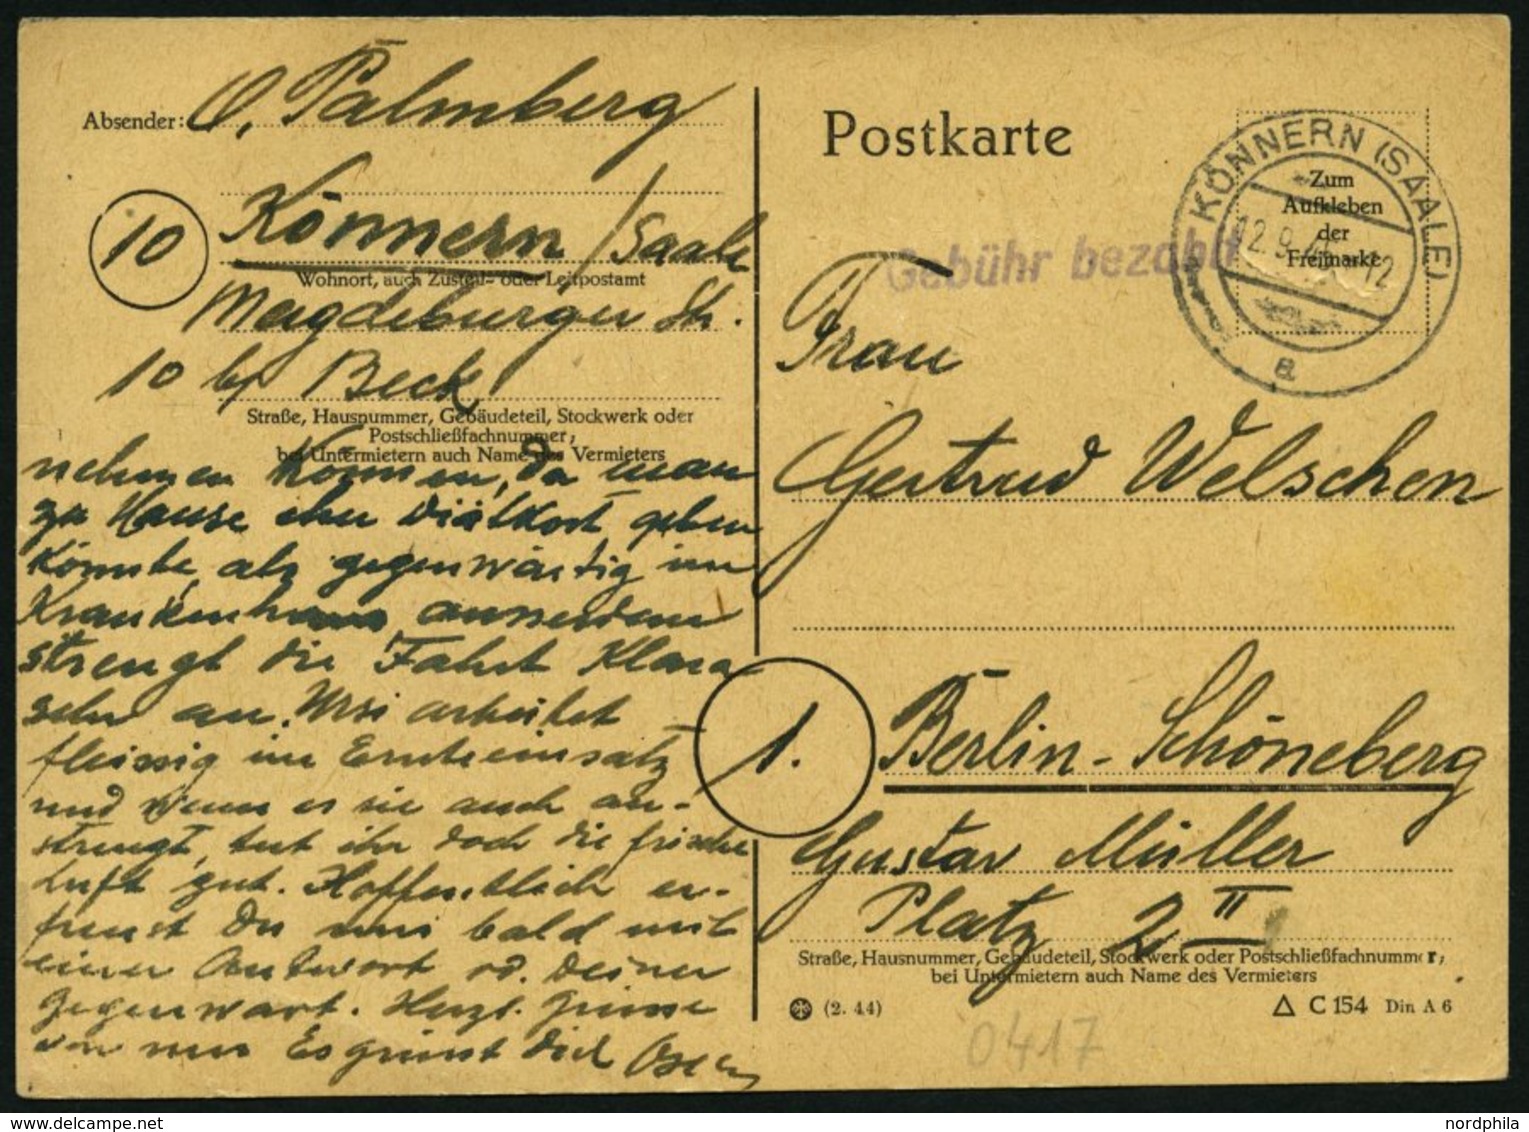 Absender: O. Palmberg
10
Könnern / Saale
Wohnort, auch Zustell- oder Leitpostamt
Magdeburger Str.
10 b/ Beck
Straße, Hausnummer, Gebäudeteil, Stockwerk oder
Postschließfachnummer;
bei Untermietern auch Name des Vermieters
nehmen können, da man
zu Hause eher Diätkost geben
könnte, als gegenwärtig im
Krankenhaus ausserdem
strengt die Fahrt Klara
sehr an. Ursi arbeitet
fleissig im Ernteeinsatz
und wenn es sie auch an-
strengt, tut ihr doch die frische
Luft gut. Hoffentlich er-
freust Du uns bald mit
einer Antwort od. Deiner
Gegenwart. Herzl. Grüsse
von uns Es grüsst Dich
Postkarte
KÖNNERN (SAALE)
12.9.
12
a
Zum
Aufkleben
der
Freimarke
Gebühr bezahlt
Frau
Gertrud Welschen
1.
Berlin-Schöneberg
Gustav Müller
Platz 2 II
Straße, Hausnummer, Gebäudeteil, Stockwerk oder Postschließfachnummer;
bei Untermietern auch Name des Vermieters
(2. 44)
C 154 Din A 6
0417
nordphila